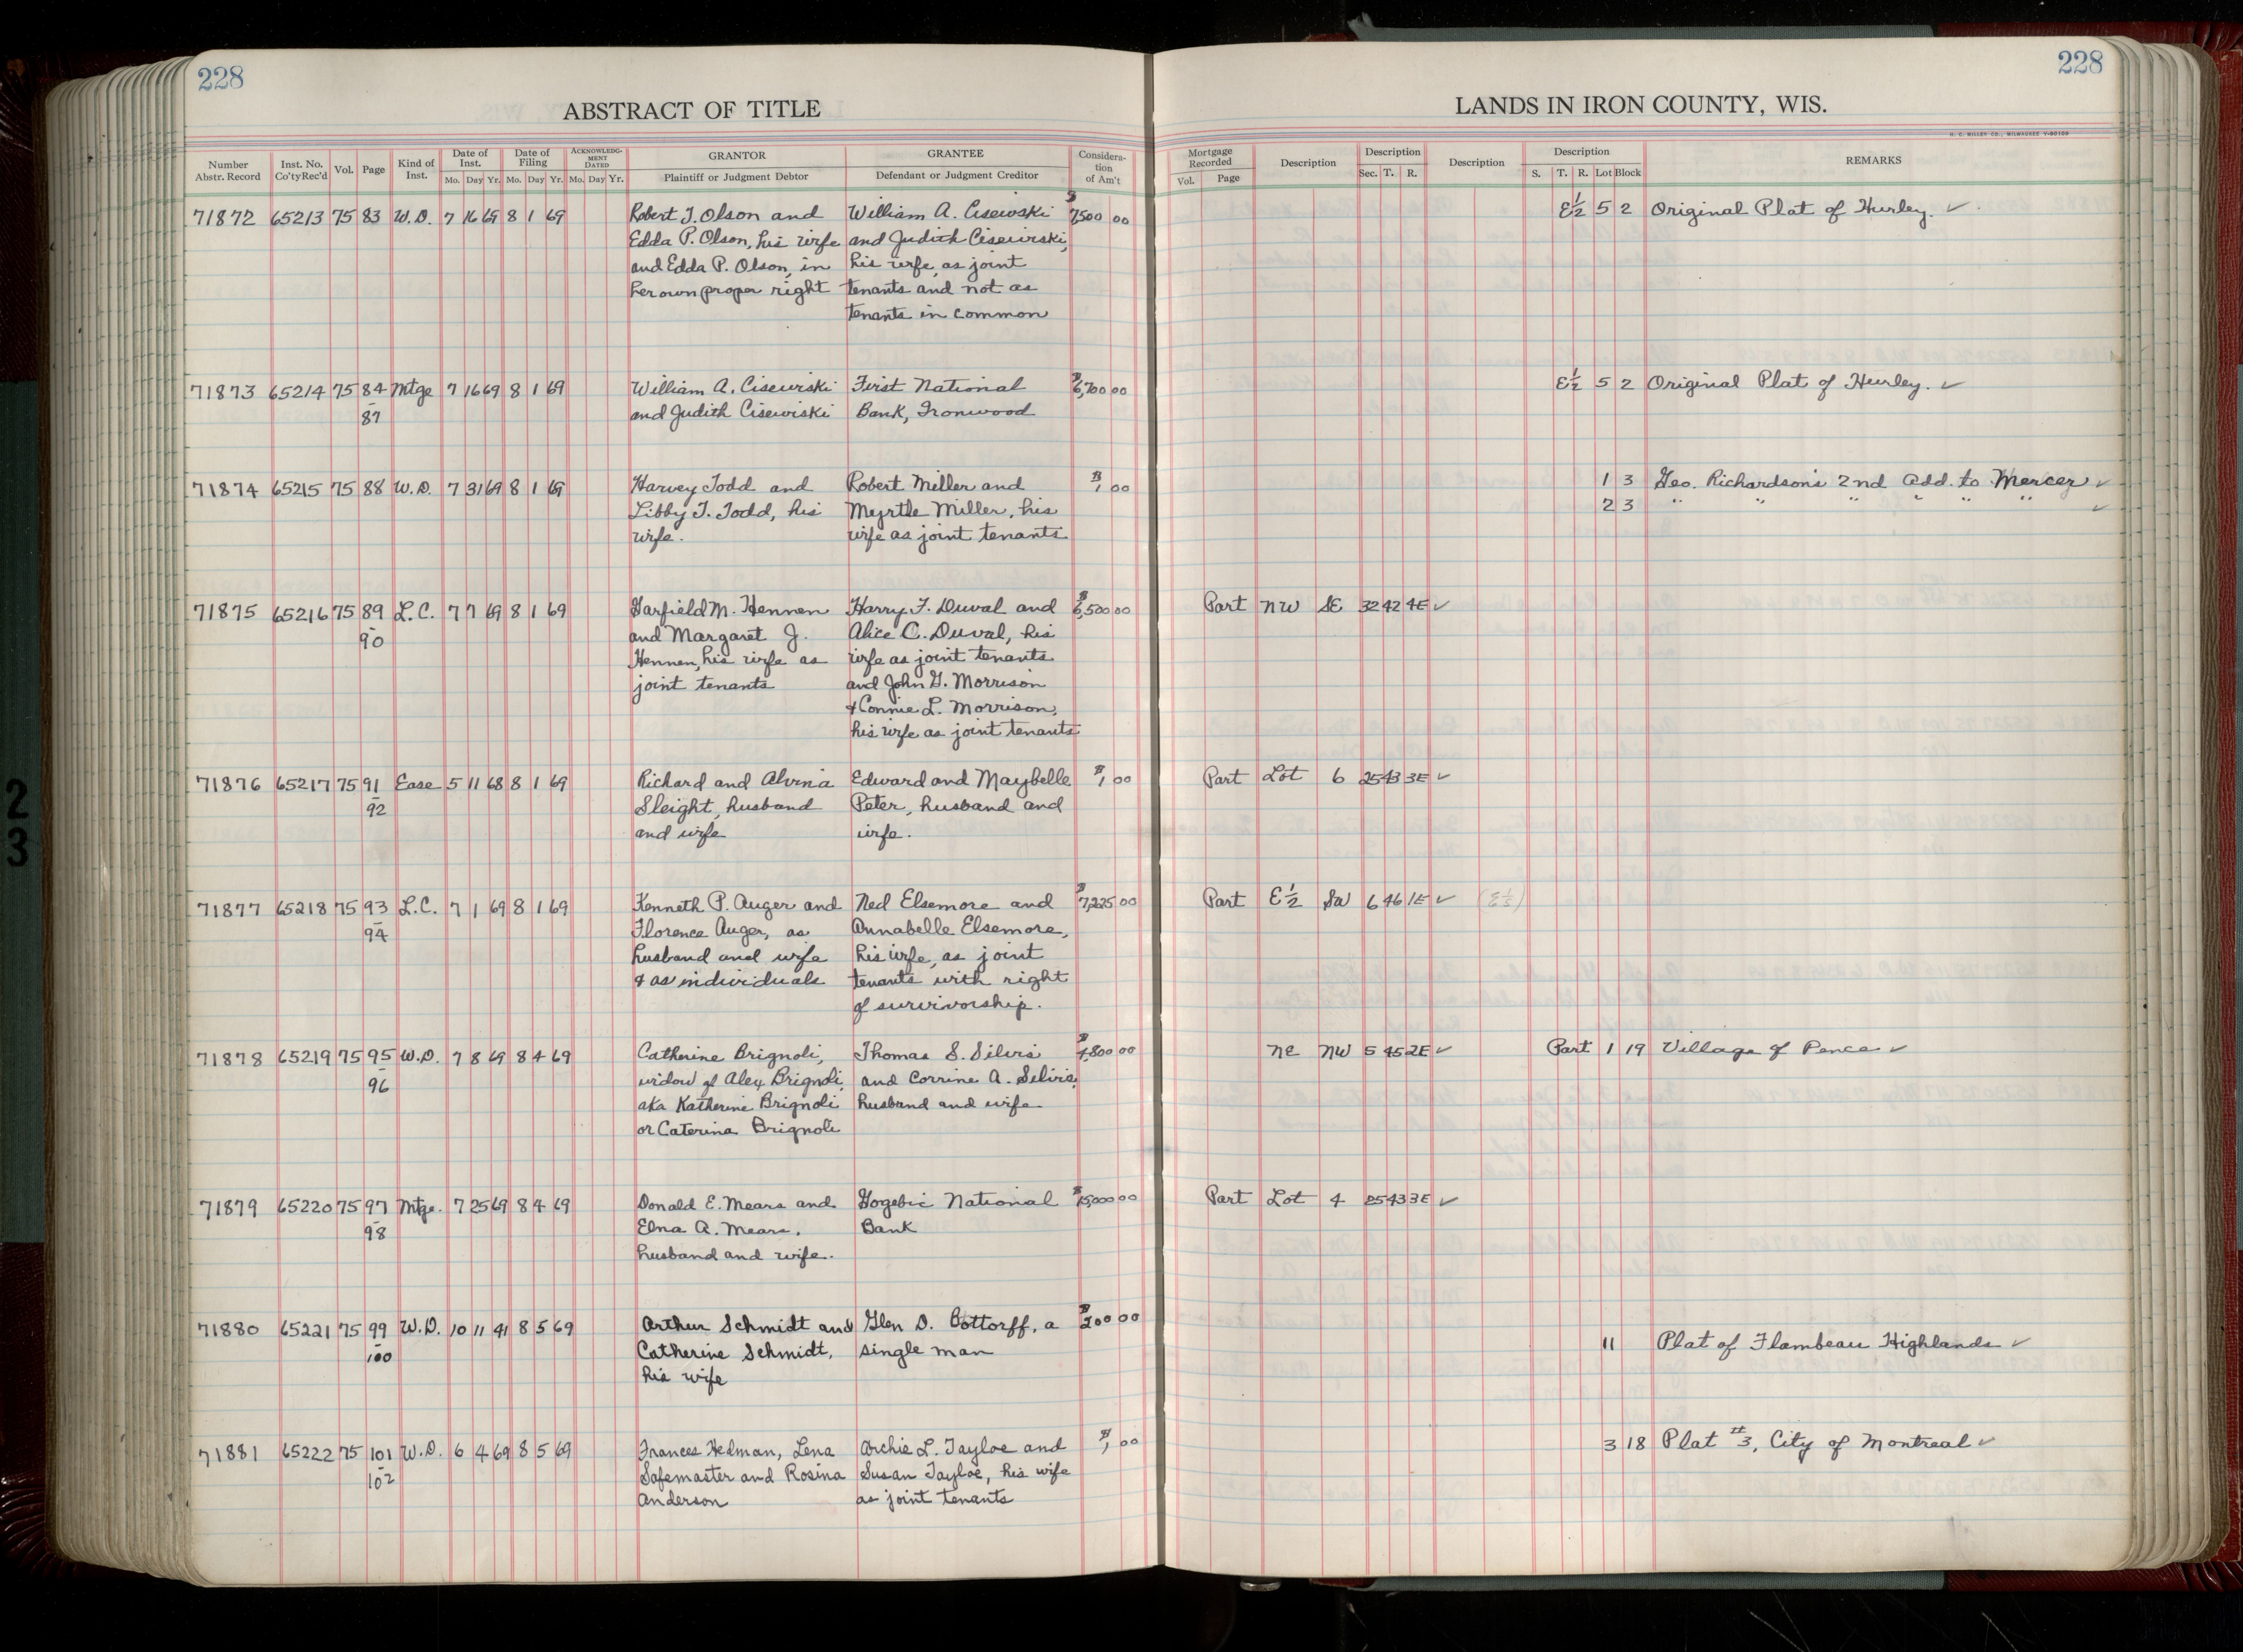 228
228
ABSTRACT OF TITLE
LANDS IN IRON COUNTY, WIS.
H. C. MILLER CO., MILWAUKEE
Number Abstr. Record
Inst. No. Co'ty Rec'd
Vol.
Page
Kind of Inst.
Date of Inst. Mo. Day Yr.
Date of Filing Mo. Day Yr.
ACKNOWLEDGMENT DATED Mo. Day Yr.
GRANTOR Plaintiff or Judgment Debtor
GRANTEE Defendant or Judgment Creditor
Consideration of Am't
Mortgage Recorded Vol. Page
Description
Description Sec. T. R.
Description
Description S. T. R. Lot Block
REMARKS
71872 65213 75 83 W.D. 7 16 69 8 1 69 Robert J. Olson and William A. Cisewski $7,500 00 E½ 5 2 Original Plat of Hurley. ✓
Edda P. Olson, his wife and Judith Cisewski,
and Edda P. Olson, in his wife, as joint
her own proper right tenants and not as
tenants in common
71873 65214 75 84 Mtge 7 16 69 8 1 69 William A. Cisewski First National $6,700 00 E½ 5 2 Original Plat of Hurley. ✓
- 87 and Judith Cisewski Bank, Ironwood
71874 65215 75 88 W.D. 7 31 69 8 1 69 Harvey Todd and Robert Miller and $1 00 1 3 Geo. Richardson's 2nd Add. to Mercer ✓
Libby T. Todd, his Myrtle Miller, his 2 3 " " " " " " ✓
wife. wife as joint tenants
71875 65216 75 89 L.C. 7 7 69 8 1 69 Garfield M. Hennen Harry F. Duval and $6,500 00 Part NW SE 32 42 4E ✓
- 90 and Margaret J. Alice C. Duval, his
Hennen, his wife as wife as joint tenants
joint tenants and John G. Morrison
& Connie L. Morrison,
his wife as joint tenants
71876 65217 75 91 Ease 5 11 68 8 1 69 Richard and Alvina Edward and Maybelle $1 00 Part Lot 6 25 43 3E ✓
- 92 Sleight, husband Peter, husband and
and wife wife.
71877 65218 75 93 L.C. 7 1 69 8 1 69 Kenneth P. Auger and Ned Elsemore and $7,225 00 Part E½ SW 6 46 1E ✓ (E½)
- 94 Florence Auger, as Annabelle Elsemore,
husband and wife his wife, as joint
& as individuals tenants with right
of survivorship.
71878 65219 75 95 W.D. 7 8 69 8 4 69 Catherine Brignoli, Thomas S. Silvis $4,800 00 NE NW 5 45 2E ✓ Part 1 19 Village of Pence ✓
- 96 widow of Alex Brignoli, and Corrine A. Silvis,
aka Katherine Brignoli husband and wife
or Caterina Brignoli
71879 65220 75 97 Mtge. 7 25 69 8 4 69 Donald E. Mears and Gogebic National $15,000 00 Part Lot 4 25 43 3E ✓
- 98 Elna A. Mears, Bank
husband and wife.
71880 65221 75 99 W.D. 10 11 41 8 5 69 Arthur Schmidt and Glen D. Bottorff, a $200 00
- 100 Catherine Schmidt, single man 11 Plat of Flambeau Highlands ✓
his wife
71881 65222 75 101 W.D. 6 4 69 8 5 69 Frances Hedman, Lena Archie L. Tayloe and $1 00 3 18 Plat #3, City of Montreal ✓
- 102 Safemaster and Rosina Susan Tayloe, his wife
Anderson as joint tenants
2
3